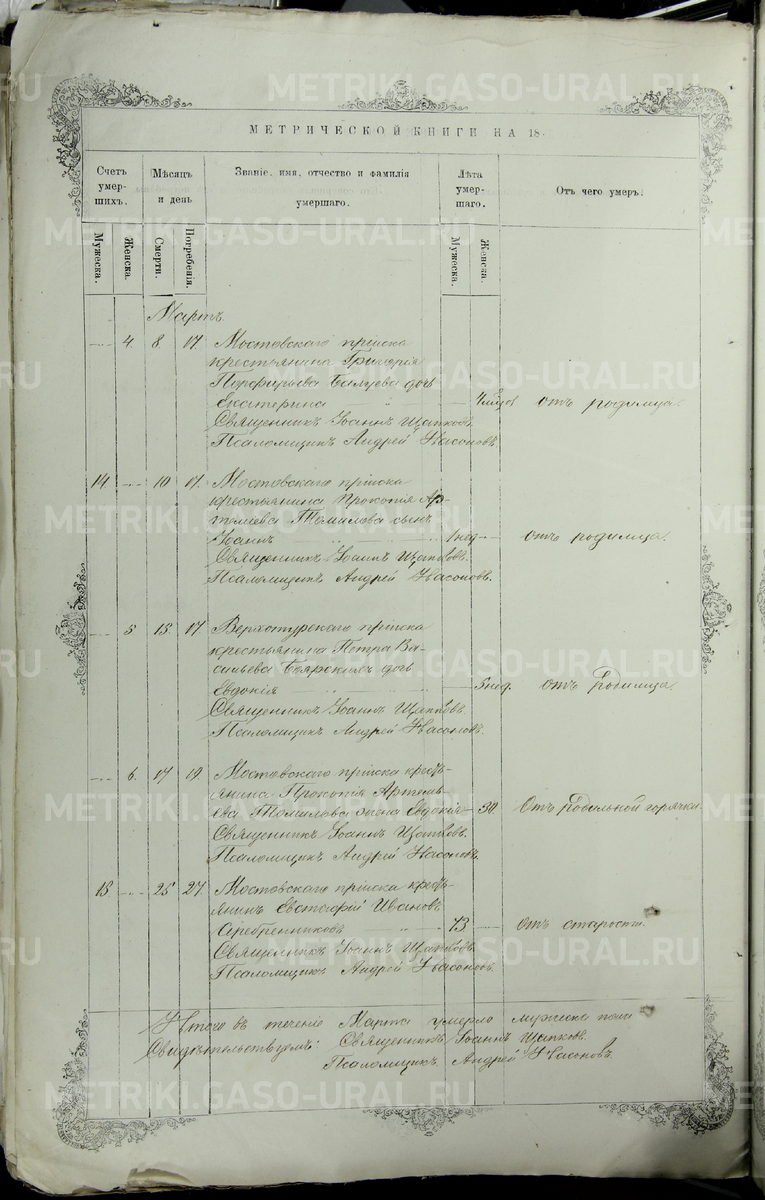 METRIKI.GASO-URAL.RU
МЕТРИЧЕСКОЙ КНИГИ НА 18
Счетъ умершихъ.
Мѣсяцъ и день
Званіе, имя, отчество и фамилія умершаго.
Лѣта умершаго.
Отъ чего умеръ.
Мужеска.
Женска.
Смерти.
Погребенія.
Мужеска.
Женска.
Мартъ
4 8 17 Мостовскаго пріиска
крестьянина Григорія
Порфирьева дочь
Екатерина отъ родимца.
Священникъ Іоаннъ Щапковъ.
Псаломщикъ Андрей Насоновъ.
14. 10 17. Мостовскаго пріиска
крестьянина Прокопія Ар-
темьева Томилова сынъ
Іоаннъ 1 нед. отъ родимца.
Священникъ Іоаннъ Щапковъ.
Псаломщикъ Андрей Насоновъ.
5 15. 17 Верхотурскаго пріиска
крестьянина Петра Ва-
сильева дочь
Евдокія 5 нед. отъ родимца.
Священникъ Іоаннъ Щапковъ.
Псаломщикъ Андрей Насоновъ.
6. 17 19. Мостовскаго пріиска кресть-
янина Прокопія Артемь-
ева Томилова жена Евдокія 30. Отъ родильной горячки.
Священникъ Іоаннъ Щапковъ.
Псаломщикъ Андрей Насоновъ.
15. 25 27. Мостовскаго пріиска кресть-
янинъ Евстафій Ивановъ
Серебренниковъ 73 отъ старости.
Священникъ Іоаннъ Щапковъ.
Псаломщикъ Андрей Насоновъ.
Итого въ теченіе Марта умерло мужеска пола
Свидѣтельствуемъ: Священникъ Іоаннъ Щапковъ.
Псаломщикъ Андрей Насоновъ.